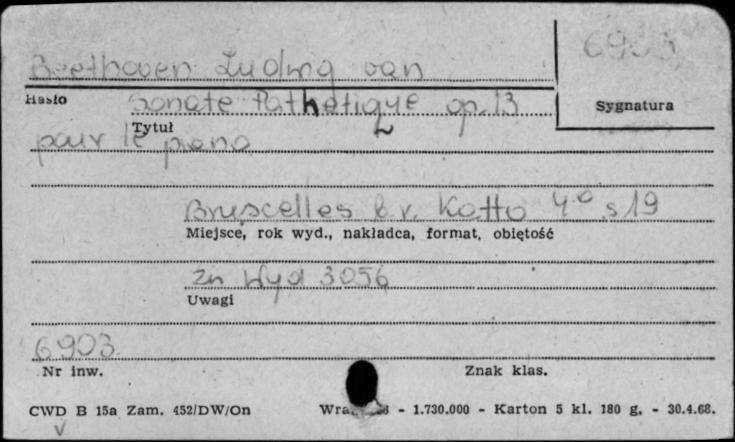 6903
Beethoven Ludwig van
Hasło
Sonate Pathetique op. 13
Sygnatura
Tytuł
pour le piano
Bruscelles b.r. Katto 4° s 19
Miejsce, rok wyd., nakładca, format, objętość
Zn Wyd 3056
Uwagi
6903
Nr inw.
Znak klas.
CWD B 15a Zam. 452/DW/On - 1.730.000 - Karton 5 kl. 180 g. - 30.4.68.